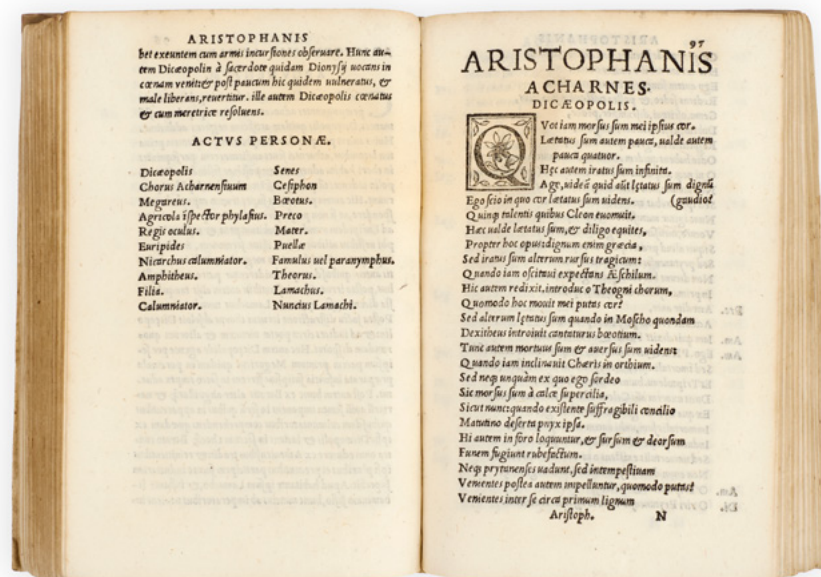 ARISTOPHANIS
bet exeuntem cum armis incursiones obseruare. Hunc au-
tem Dicæopolin à sacerdote quidam Dionysij uocans in
cœnam venit: & post paucum hic quidem uulneratus, &
male liberans, reuertitur. ille autem Dicæopolis cœnatus
& cum meretrice resoluens.
ACTVS PERSONÆ.
Dicæopolis
Chorus Acharnensiuum
Megareus.
Agricola ĩspector phylasius.
Regis oculus.
Euripides
Nicarchus calumniator.
Amphitheus.
Filia.
Calumniator.
Senes
Cesiphon
Bœotus.
Preco
Mater.
Puellæ
Famulus uel paranymphus.
Theorus.
Lamachus.
Nuncius Lamachi.
97
ARISTOPHANIS
ACHARNES.
DICÆOPOLIS.
QVot iam morsus sum mei ipsius cor.
Lætatus sum autem pauca, ualde autem
pauca quatuor.
Hęc autem iratus sum infinita.
Age, uideã quid aũt lętatus sum dignũ
Ego scio in quo cor lætatus sum uidens. (gaudio?
Quinq; talentis quibus Cleon euomuit.
Hæc ualde lætatus sum, & diligo equites,
Propter hoc opus: dignum enim græcia,
Sed iratus sum alterum rursus tragicum:
Quando iam oscitaui expectans Æschilum.
Hic autem redixit, introduc o Theogni chorum,
Quomodo hoc mouit mei putas cor?
Sed alterum lętatus sum quando in Moscho quondam
Dexitheus introiuit cantaturus bœotium.
Tunc autem mortuus sum & auersus sum uidens:
Quando iam inclinauit Chæris in orthium.
Sed neq; unquàm ex quo ego sordeo
Sic morsus sum à calce supercilia,
Sicut nunc: quando existente suffragibili concilio
Matutino deserta pnyx ipsa.
Hi autem in foro loquuntur, & sursum & deorsum
Funem fugiunt rubefactum.
Neq; prytanenses uadunt, sed intempestiuam
Venientes postea autem impelluntur, quomodo putas?
Venientes inter se circa primum lignum
Aristoph. N